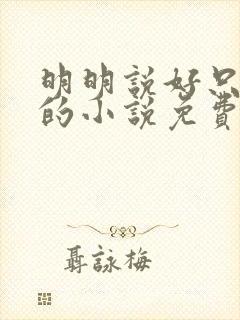 明明說好只
的小說免費
聶詠梅